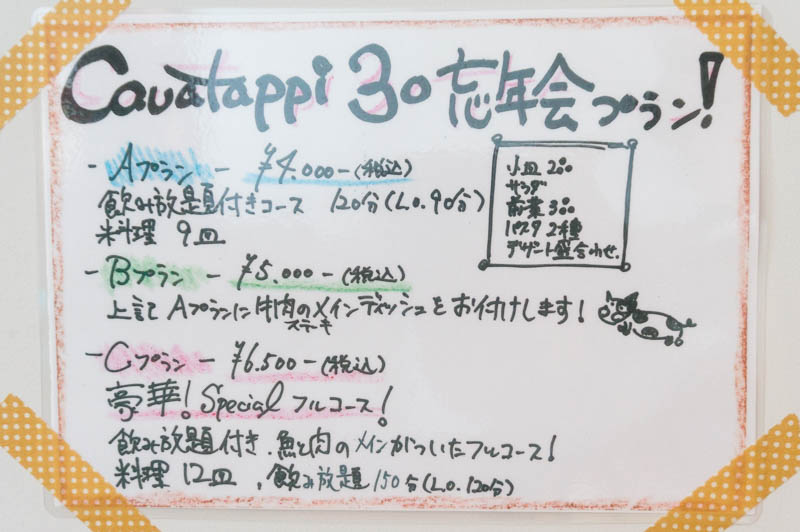 Cavatappi 30 忘年会プラン!
- Aプラン - ¥4.000-(税込)
飲み放題付きコース 120分(L.O.90分)
料理 9皿
小皿 2品
サラダ
前菜 3品
パスタ 2種
デザート盛合わせ.
- Bプラン - ¥5.000-(税込)
上記Aプランに牛肉のメインディッシュをお付けします!
ステーキ
- Cプラン - ¥6.500-(税込)
豪華! Special フルコース!
飲み放題付き、魚と肉のメインがついたフルコース!
料理 12皿、飲み放題150分(L.O.120分)